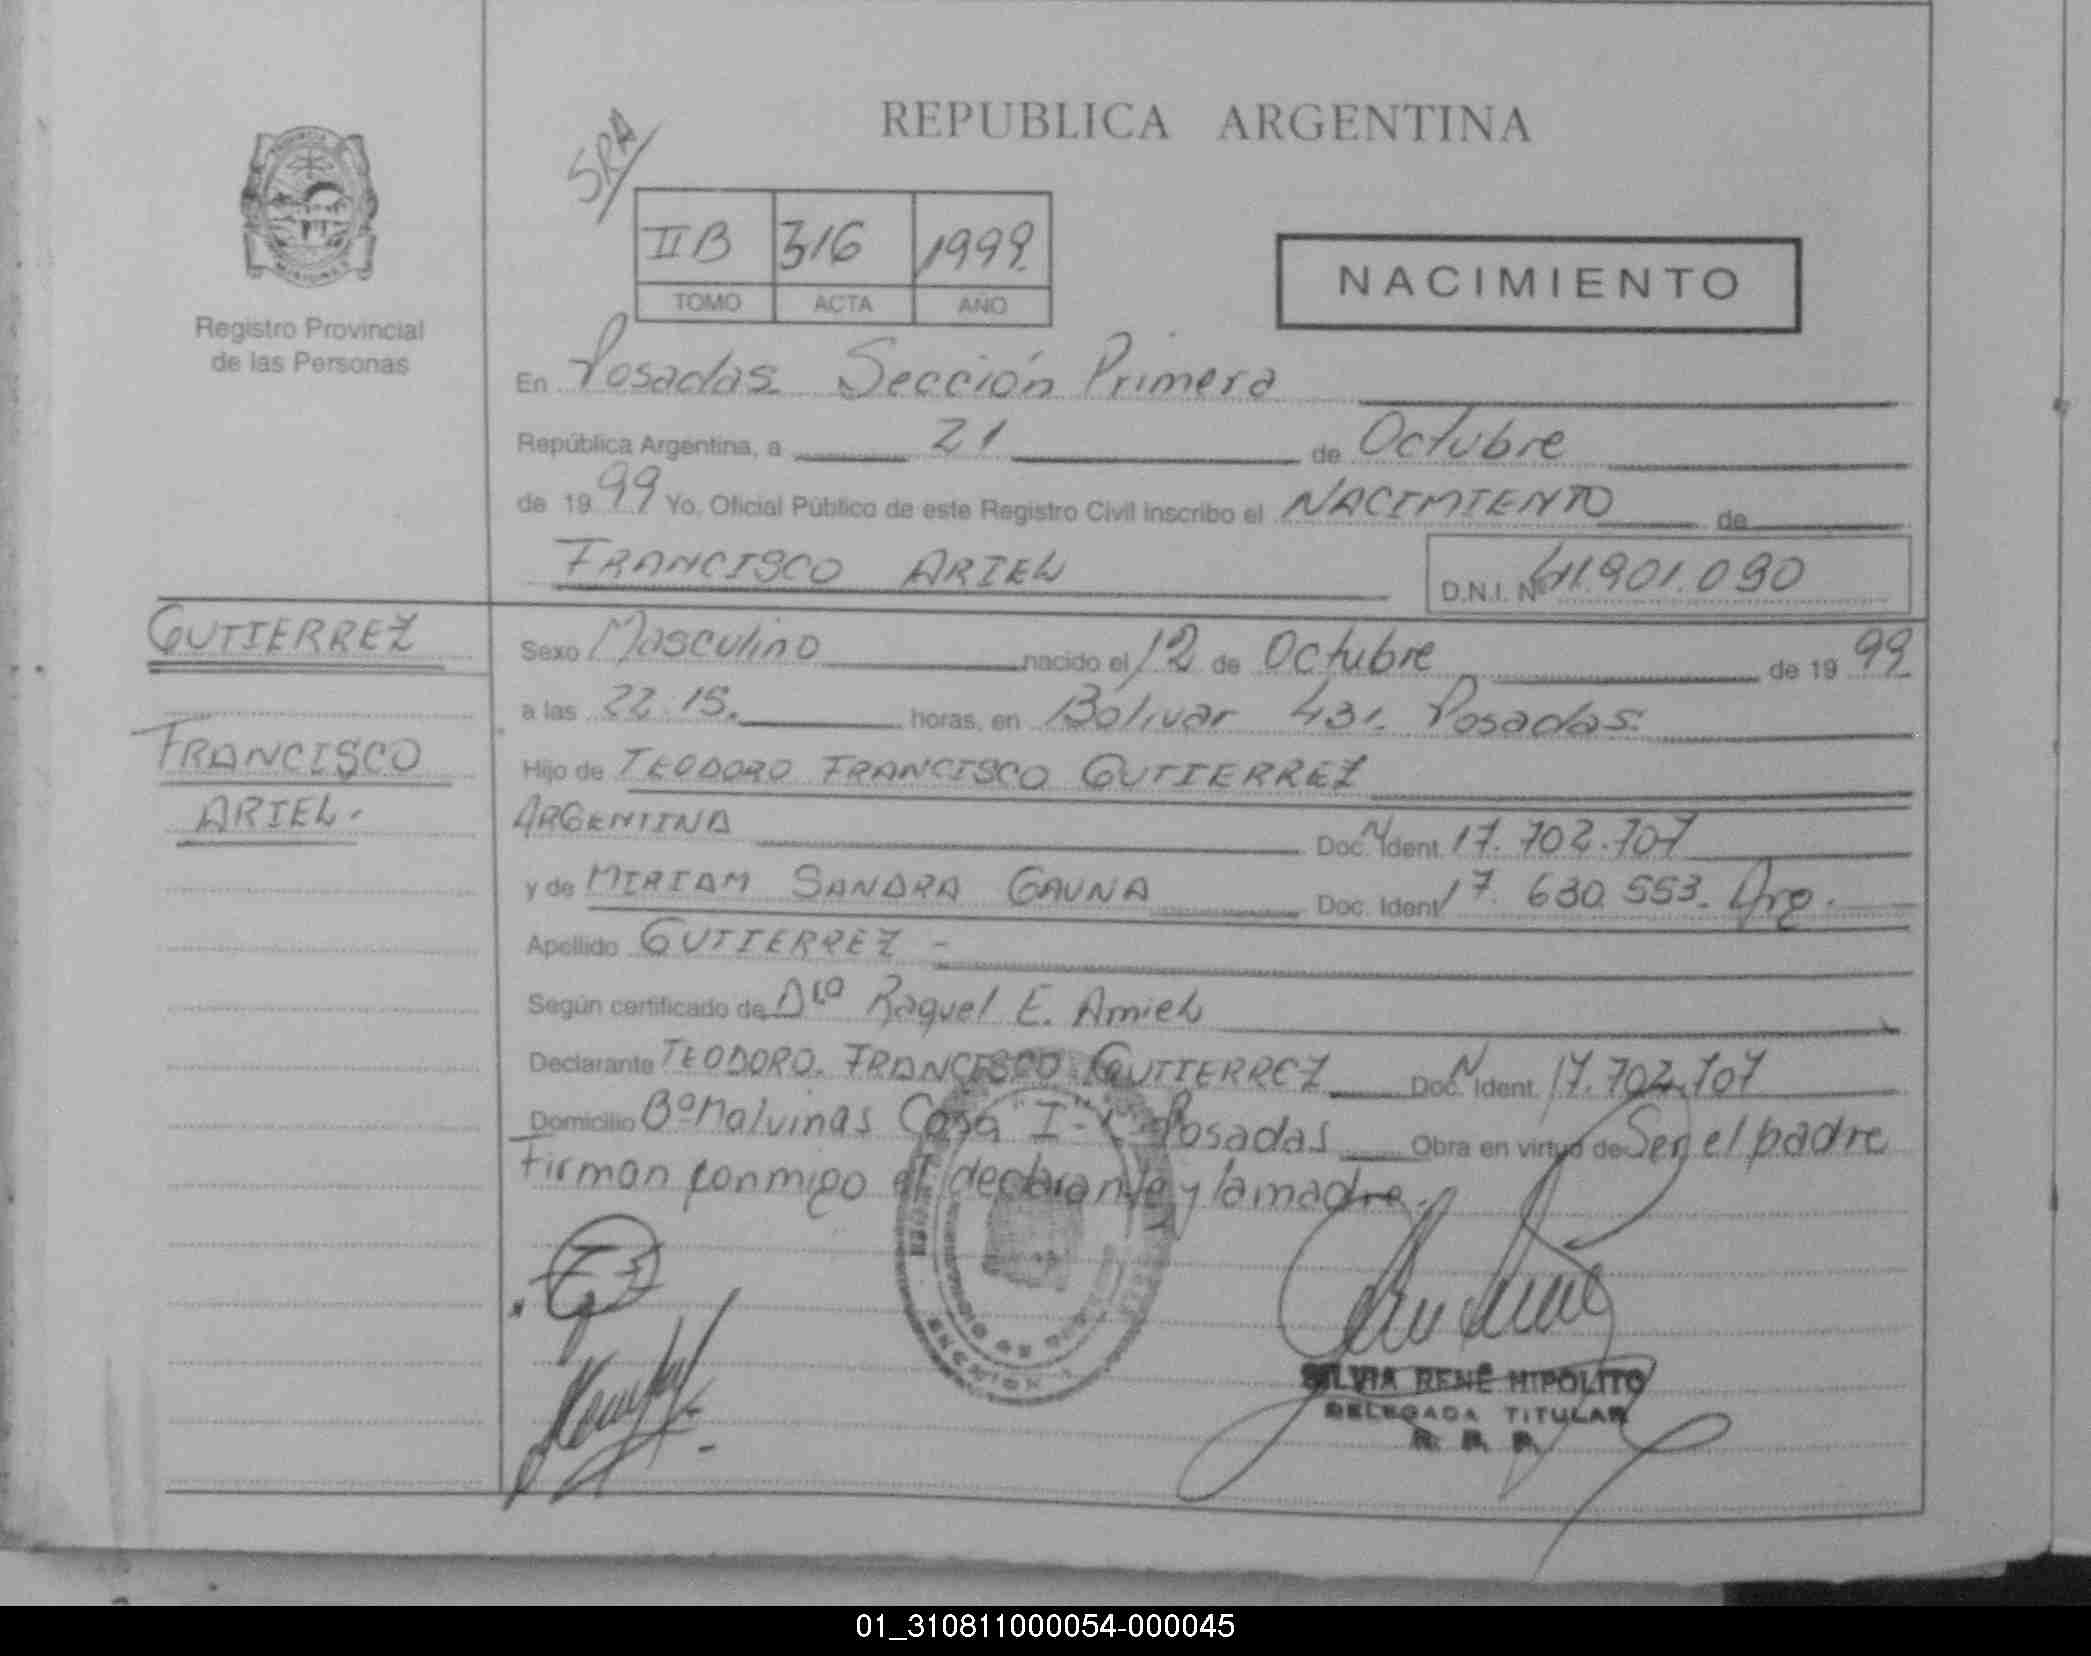 REPUBLICA ARGENTINA
SRA
IIB 316 1999.
TOMO ACTA AÑO
NACIMIENTO
Registro Provincial
de las Personas
En Posadas Sección Primera
República Argentina, a 21 de Octubre
de 1999 Yo, Oficial Público de este Registro Civil inscribo el NACIMIENTO de
FRANCISCO ARIEL D.N.I. Nº 41.901.090
GUTIERREZ
FRANCISCO
ARIEL.
Sexo Masculino nacido el 12 de Octubre de 1999
a las 22.15. horas, en Bolivar 431. Posadas.
Hijo de TEODORO FRANCISCO GUTIERREZ
ARGENTINA Doc. N Ident. 17.702.707
y de MIRIAM SANDRA GAUNA Doc. Ident 17.630.553. Arg.
Apellido GUTIERREZ -
Según certificado de Dra Raquel E. Amiel
Declarante TEODORO. FRANCISCO GUTIERREZ Doc. N Ident. 17.702.707
Domicilio Bº Malvinas Casa "I" Posadas Obra en virtud de Ser el padre
Firman conmigo el declarante y la madre.
SILVIA RENÉ HIPOLITO
DELEGADA TITULAR
R. P. P.
01_310811000054-000045